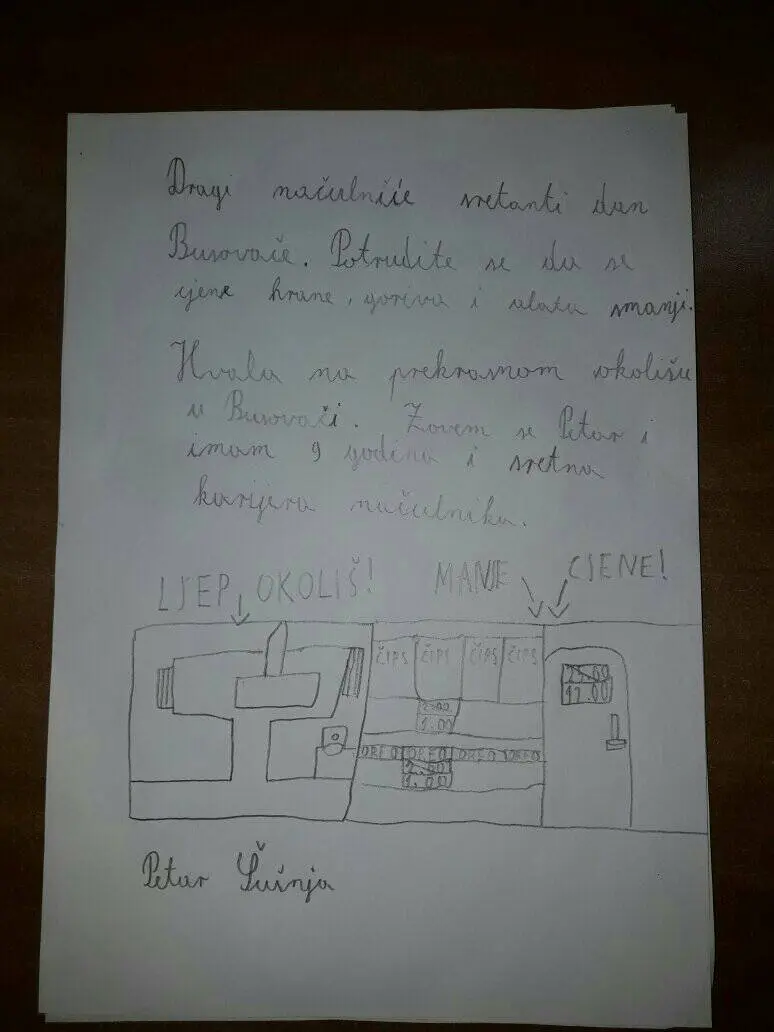 Dragi načelniče sretanti dan
Busovače. Potrudite se da se
cjene hrane, goriva i alata smanji.
Hvala na prekrasnom okolišu
u Busovači. Zovem se Petar i
imam 9 godina i sretna
karijera načelnika.
LJEP OKOLIŠ! MANJE CJENE!
ČIPS ČIPS ČIPS ČIPS
2.00
1.00
OREO OREO OREO OREO
2.00
1.00
12.00
Petar Šušnja